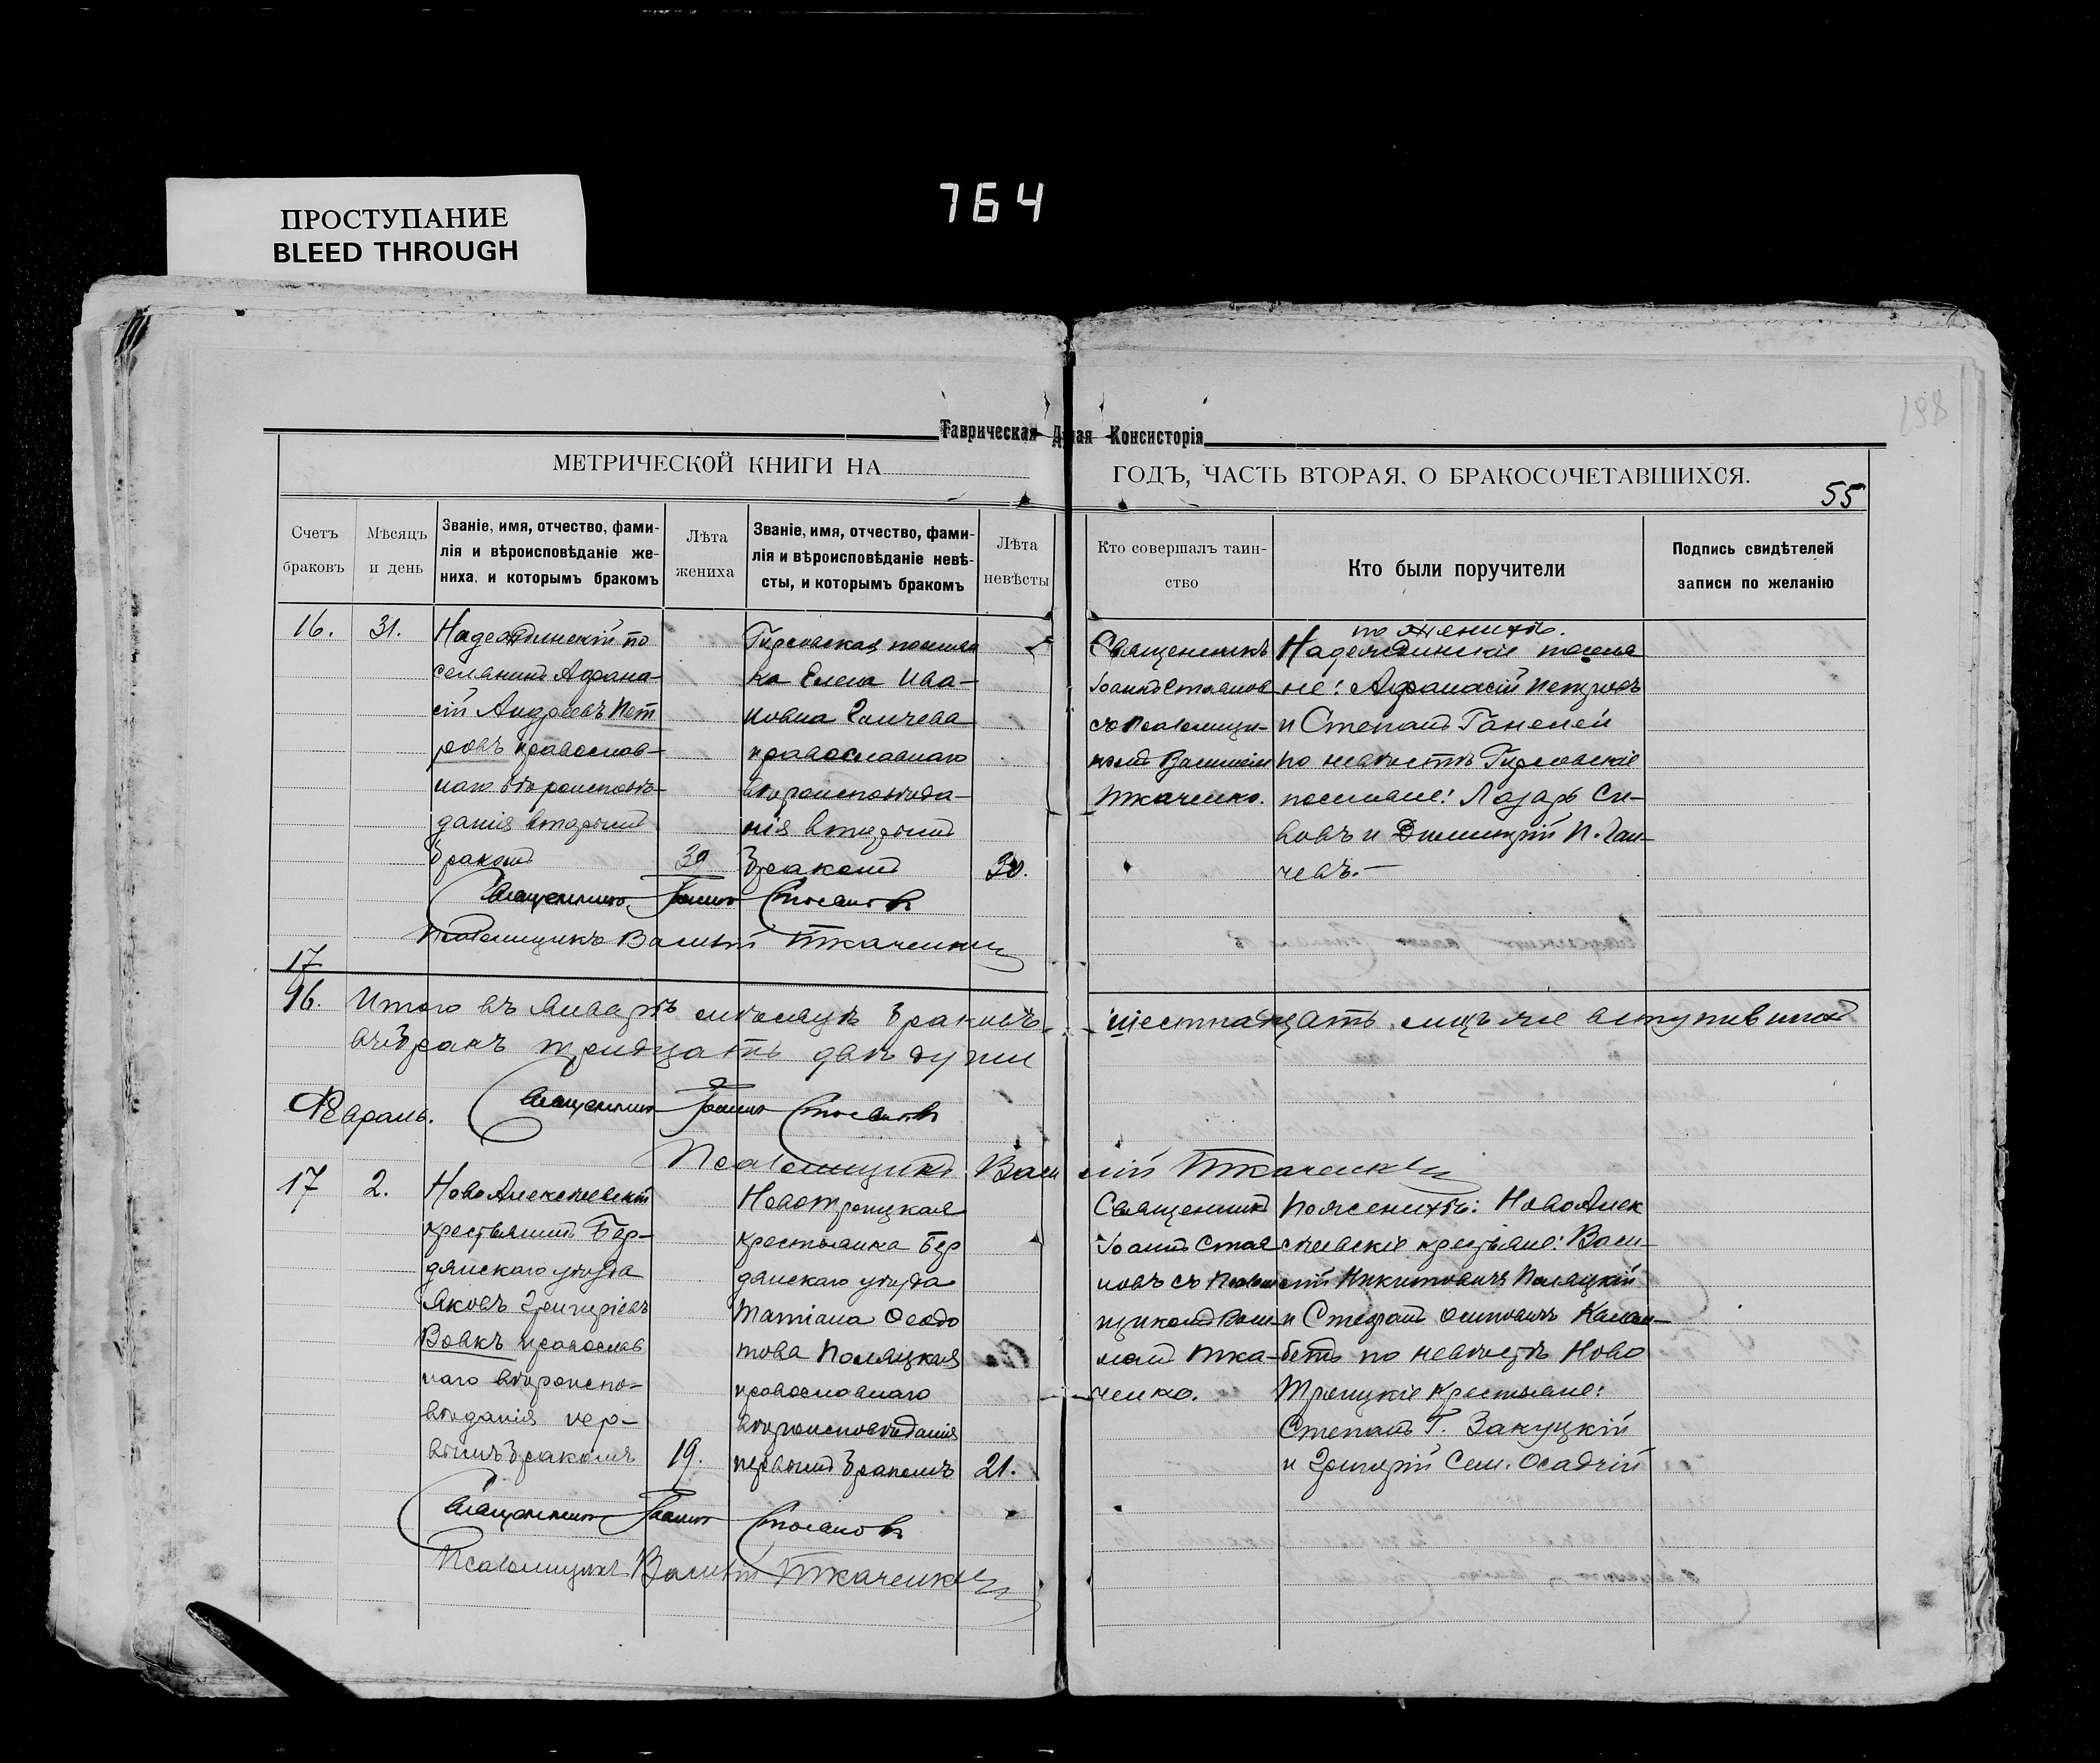 ПРОСТУПАНИЕ
BLEED THROUGH
764
198
Таврическая Д ная Консисторія
МЕТРИЧЕСКОЙ КНИГИ НА
ГОДЪ, ЧАСТЬ ВТОРАЯ, О БРАКОСОЧЕТАВШИХСЯ.
55
Счетъ
браковъ
Мѣсяцъ
и день
Званіе, имя, отчество, фами-
лія и вѣроисповѣданіе же-
ниха, и которымъ бракомъ
Лѣта
жениха
Званіе, имя, отчество, фами-
лія и вѣроисповѣданіе невѣ-
сты, и которымъ бракомъ
Лѣта
невѣсты
Кто совершалъ таин-
ство
Кто были поручители
Подпись свидѣтелей
записи по желанію
16.
31.
Надеждинскій по
селянинъ Афана-
сій Андреевъ Пет
ровъ православ-
наго вѣроисповѣ-
данія вторымъ
бракомъ
39
Гирсовская поселян
ка Елена Ива-
новна Ганчева
православнаго
вѣроисповѣда-
нія вторымъ
бракомъ
30.
Священникъ
Іоаннъ Стоянов
съ Псаломщи-
комъ Василіем
Ткаченко.
по женихѣ.
Надеждинскіе поселя
не: Афанасій Петровъ
и Степанъ Ганелей
по невѣстѣ Гирсовскіе
поселяне: Лазарь Си-
вовъ и Димитрій П. Ган-
чевъ.—
Священникъ Іоаннъ Стояновъ
Псаломщикъ Василій Ткаченко
17
16.
Итого въ Январѣ мѣсяцѣ браковъ шестнадцать, лицъ же вступившихъ
въ бракъ тридцать двѣ души
Священникъ Іоаннъ Стояновъ
Февраль.
Псаломщикъ Василій Ткаченко
17
2.
НовоАлексѣевскій
крестьянинъ Бер-
дянскаго уѣзда
Яковъ Григоріевъ
Вовкъ православ
наго вѣроиспо-
вѣданія пер-
вымъ бракомъ
19.
Новотроицкая
крестьянка Бер
дянскаго уѣзда
Татіана Ѳеодо
това Поляцкая
православнаго
вѣроисповѣданія
первымъ бракомъ
21.
Священникъ
Іоаннъ Стоя
новъ съ Псалом
щикомъ Васи-
ліемъ Тка-
ченко.
По женихѣ: НовоАлек
сѣевскіе крестьяне: Васи-
лій Никитовичъ Поляцкій
и Стефанъ Осиповичъ
по невѣстѣ Ново
Троицкіе крестьяне:
Степанъ Г. Закуцкій
и Григорій Сем. Осадчій
Священникъ Іоаннъ Стояновъ
Псаломщикъ Василій Ткаченко